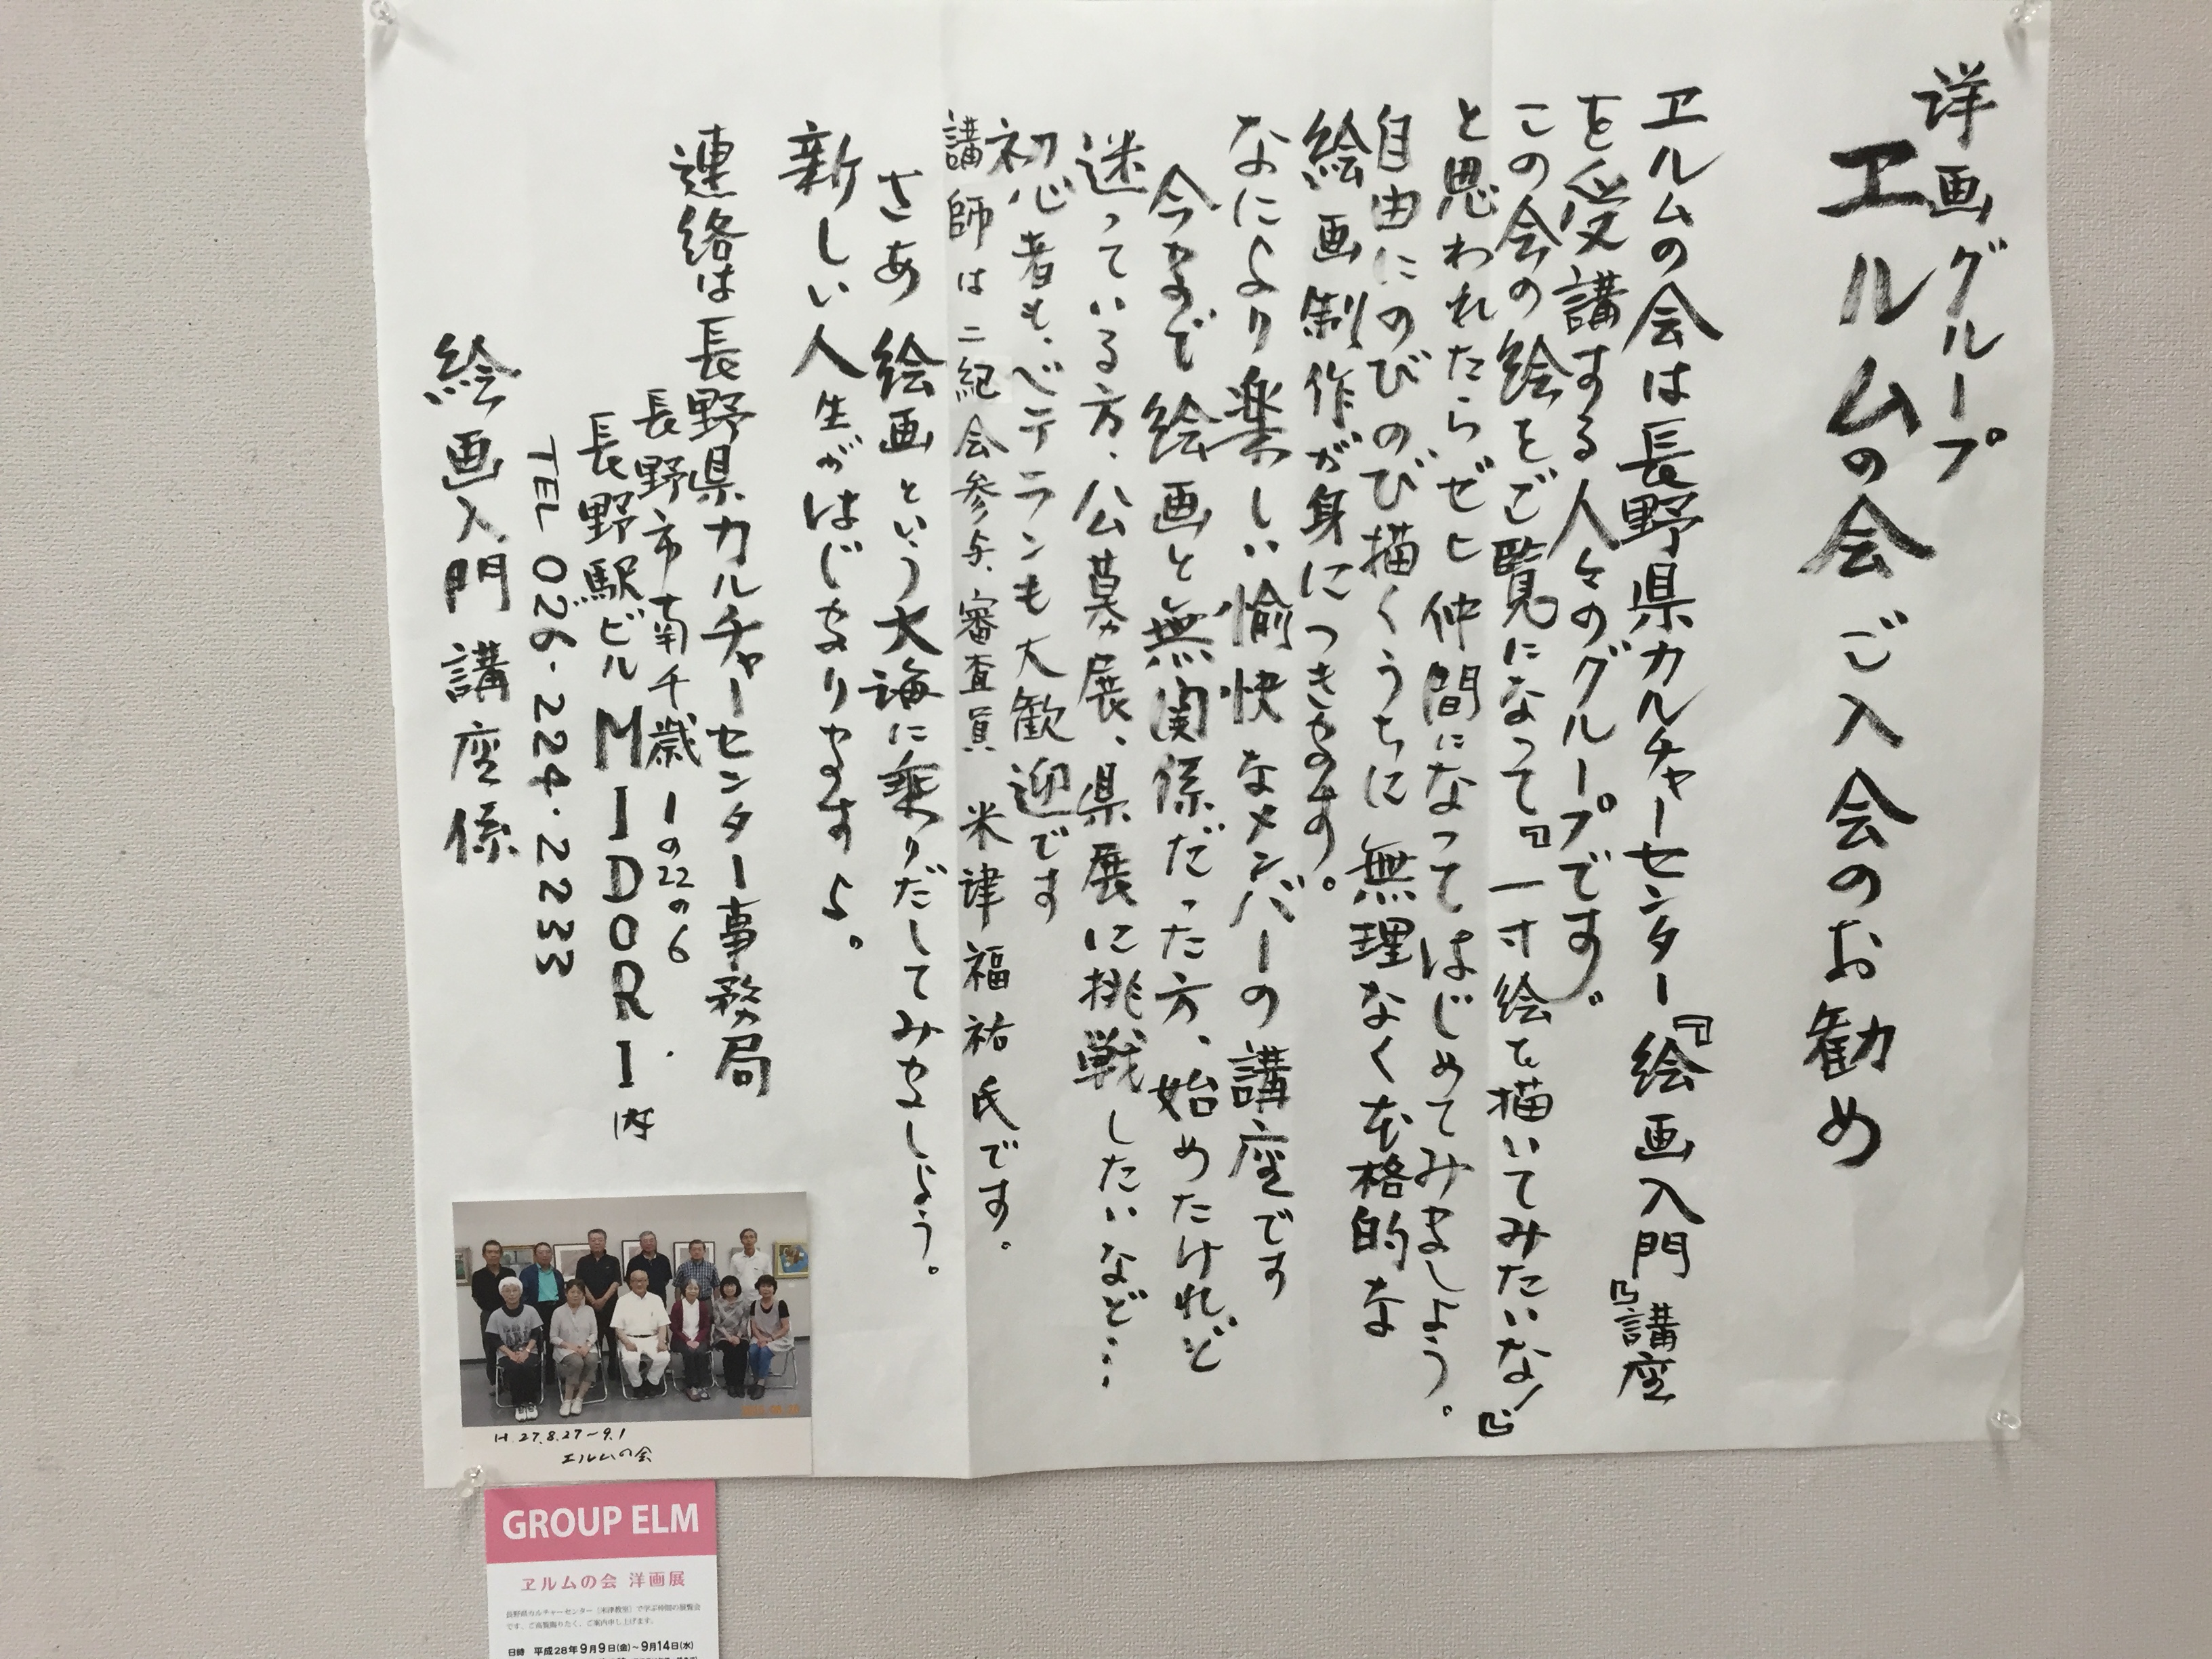 洋画グループ
ヱルムの会ご入会のお勧め
ヱルムの会は長野県カルチャーセンター『絵画入門』講座
を受講する人々のグループです。
この会の絵をご覧になって『一寸絵を描いてみたいな!』
と思われたらぜヒ仲間になってはじめてみましょう。
自由にのびのび描くうちに無理なく本格的な
絵画制作が身につきます。
なにより楽しい愉快なメンバーの講座です
今まで絵画と無関係だった方、始めたけれど
迷っている方、公募展、県展に挑戦したいなど…
初心者も、ベテランも大歓迎です
講師は二紀会参与、審査員 米津福祐氏です。
さあ 絵画という大海に乗りだしてみましょう。
新しい人生がはじまりますよ。
連絡は長野県カルチャーセンター事務局
長野市南千歳1の22の6
長野駅ビルMIDORI内
TEL 026-224-2233
絵画入門講座係
H.27.8.27~9.1
エルムの会
GROUP ELM
ヱルムの会 洋画展
長野県カルチャーセンター［米津教室］で学ぶ仲間の展覧会
です。ご高覧賜りたく、ご案内申し上げます。
日時 平成28年9月9日(金)~9月14日(水)